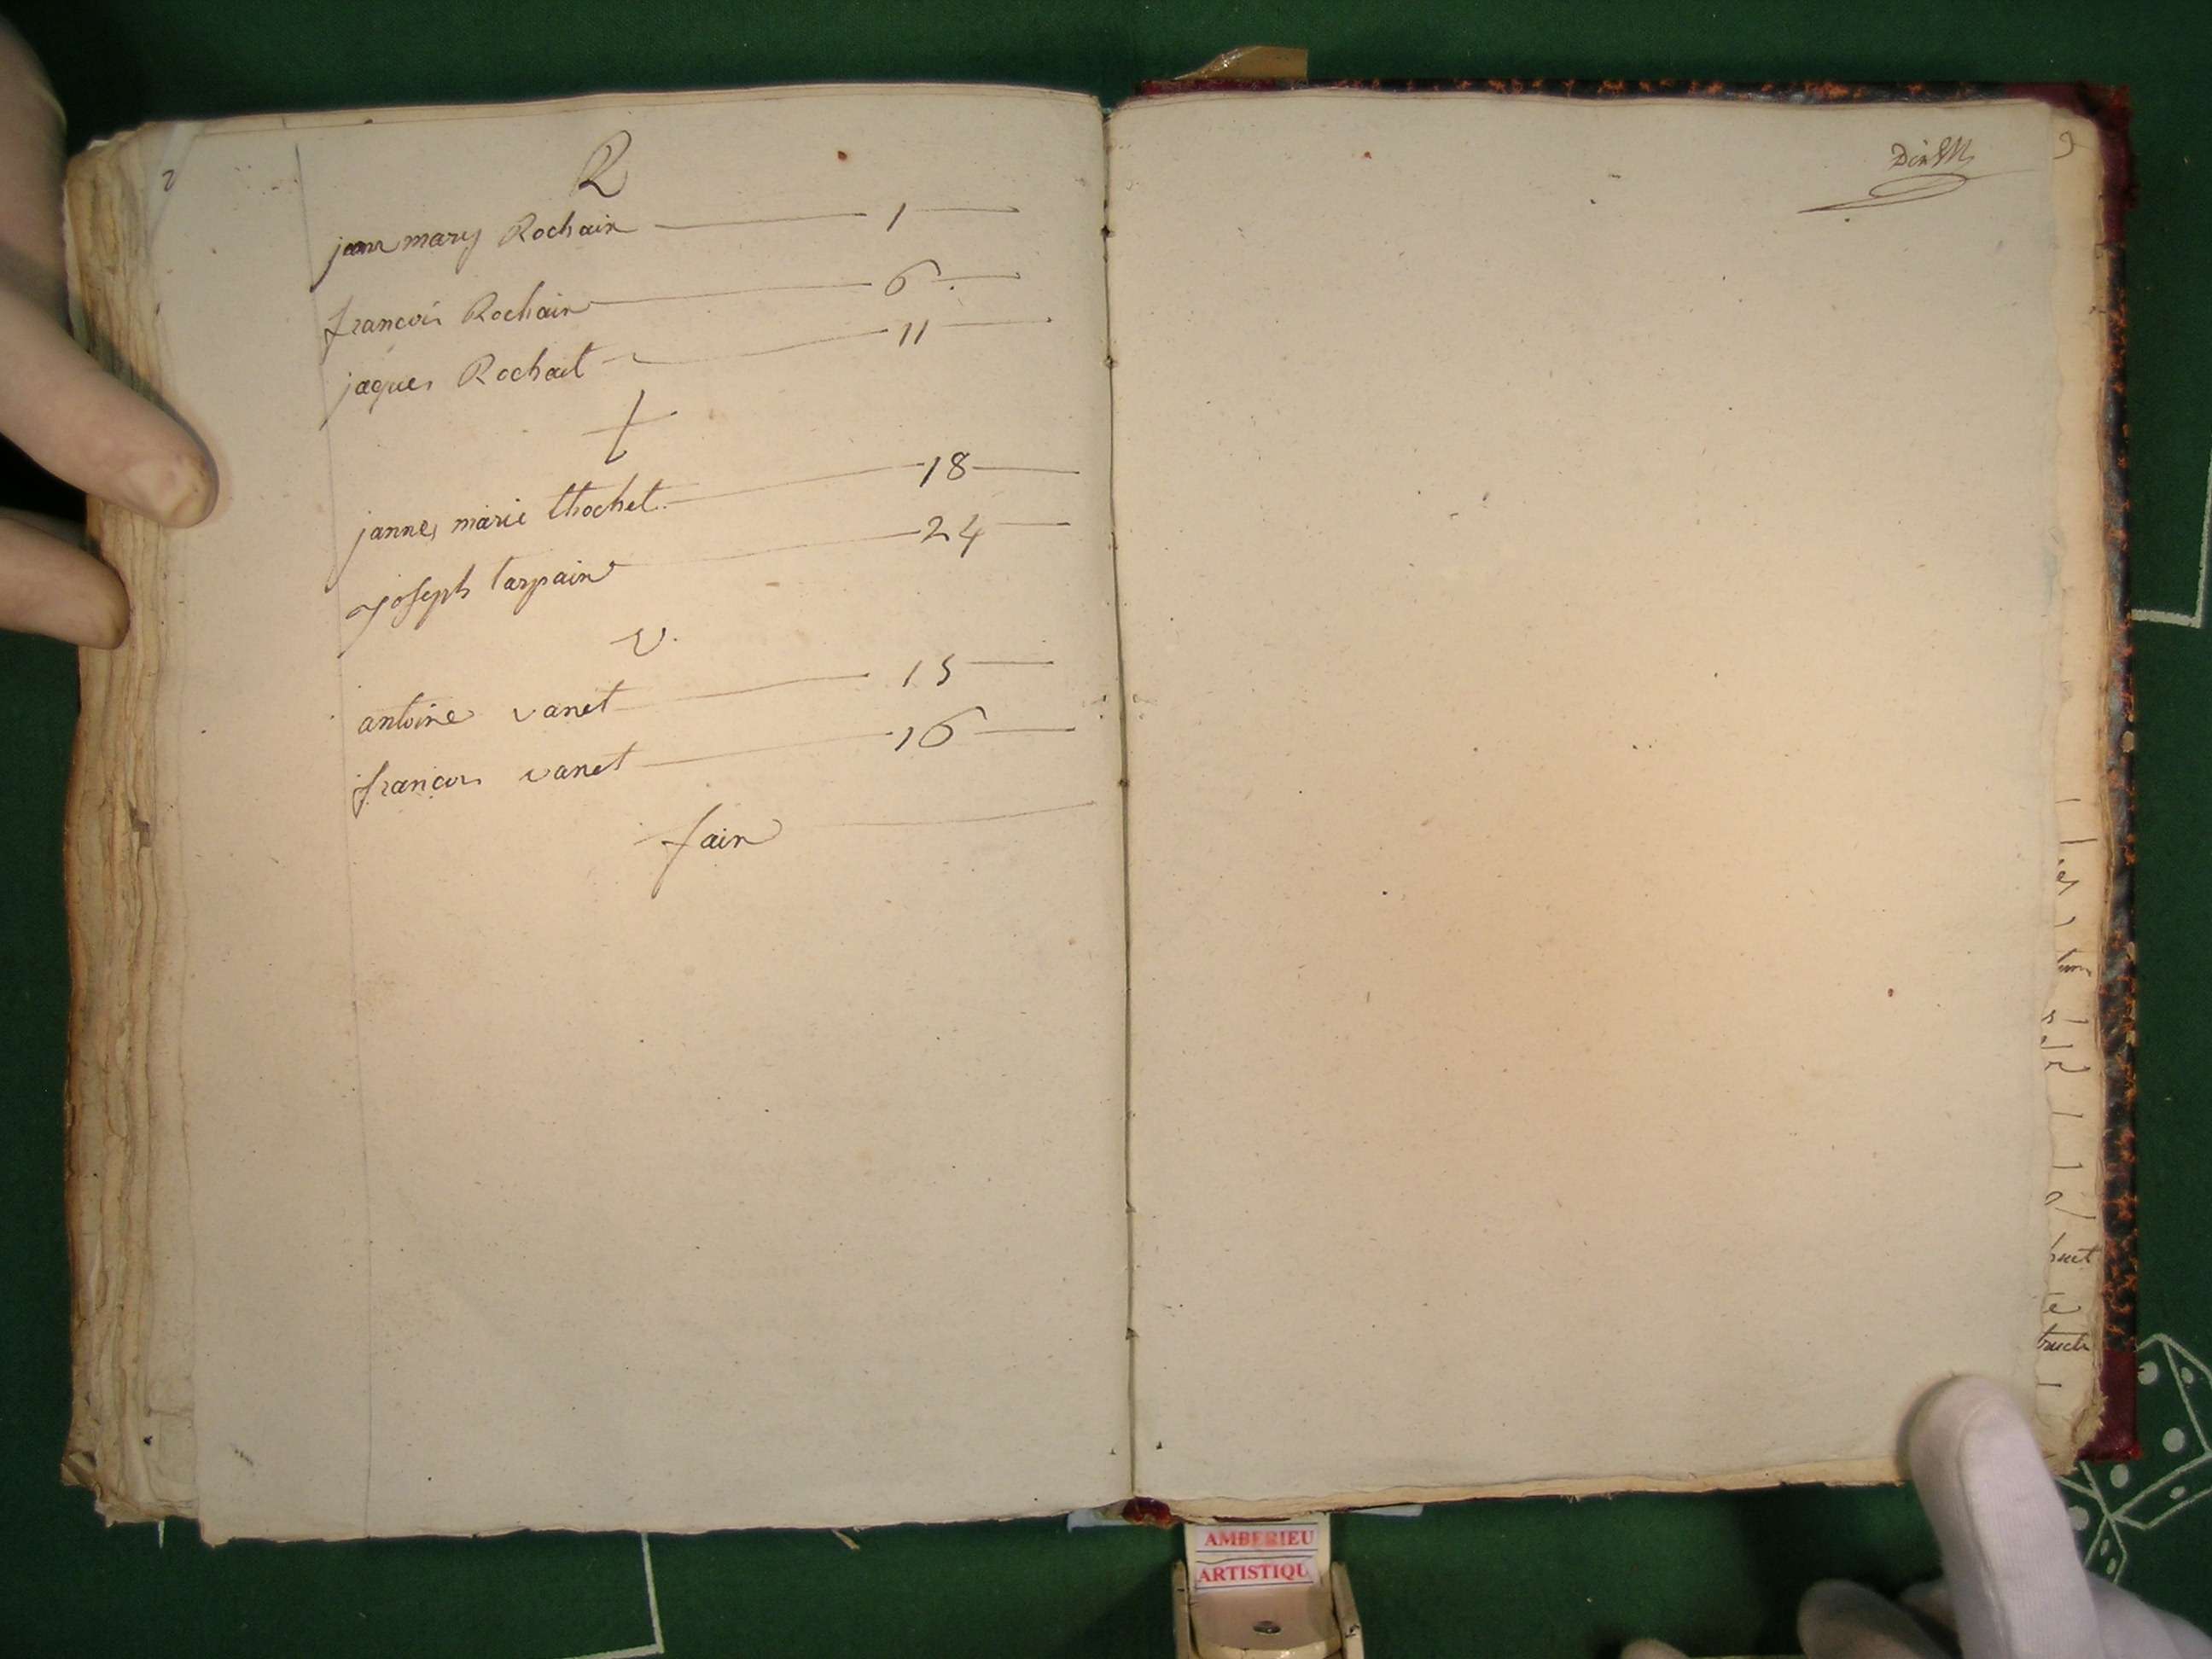 R
jean mary Rochain 1
francois Rochain 6
jaques Rochait 11
t
janne marie thochet 18
joseph tarpain 24
v.
antoine vanet 15
francois vanet 16
fain
AMBERIEU
ARTISTIQU